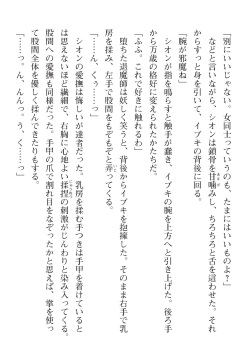 「別にいいじゃない。女同士っていうのも、たまにはいいものよ？」
　などと言いながら、シオンは鎖骨を甘噛みし、ちろちろと舌を這わせ、それ
からすっと身を引いて、イブキの背後に回る。
「腕が邪魔ね」
　シオンが指を鳴らすと触手が蠢き、イブキの腕を上方へと引き上げた。後ろ手
から万歳の格好に変えられたかたちだ。
「ふふ、これで好きに触れるわ」
　堕ちた退魔師は妖しく笑うと、背後からイブキを抱擁した。そのまま右手で乳
房を揉み、左手で股間をもぞもぞと弄ってくる。
「……ん、くぅ……っ」
　シオンの愛撫は悔しいが達者だった。乳房を揉む手つきは手甲を着けていると
は思えないほど繊細で、右胸に心地よい揉捏の刺激がじんわりと染み入ってくる。
股間への愛撫も同様だった。手甲の爪で割れ目をなぞったかと思えば、掌を使っ
て股間全体を優しく揉んできたりもする。
「……っ。ん、んんっ。う、く……っ」